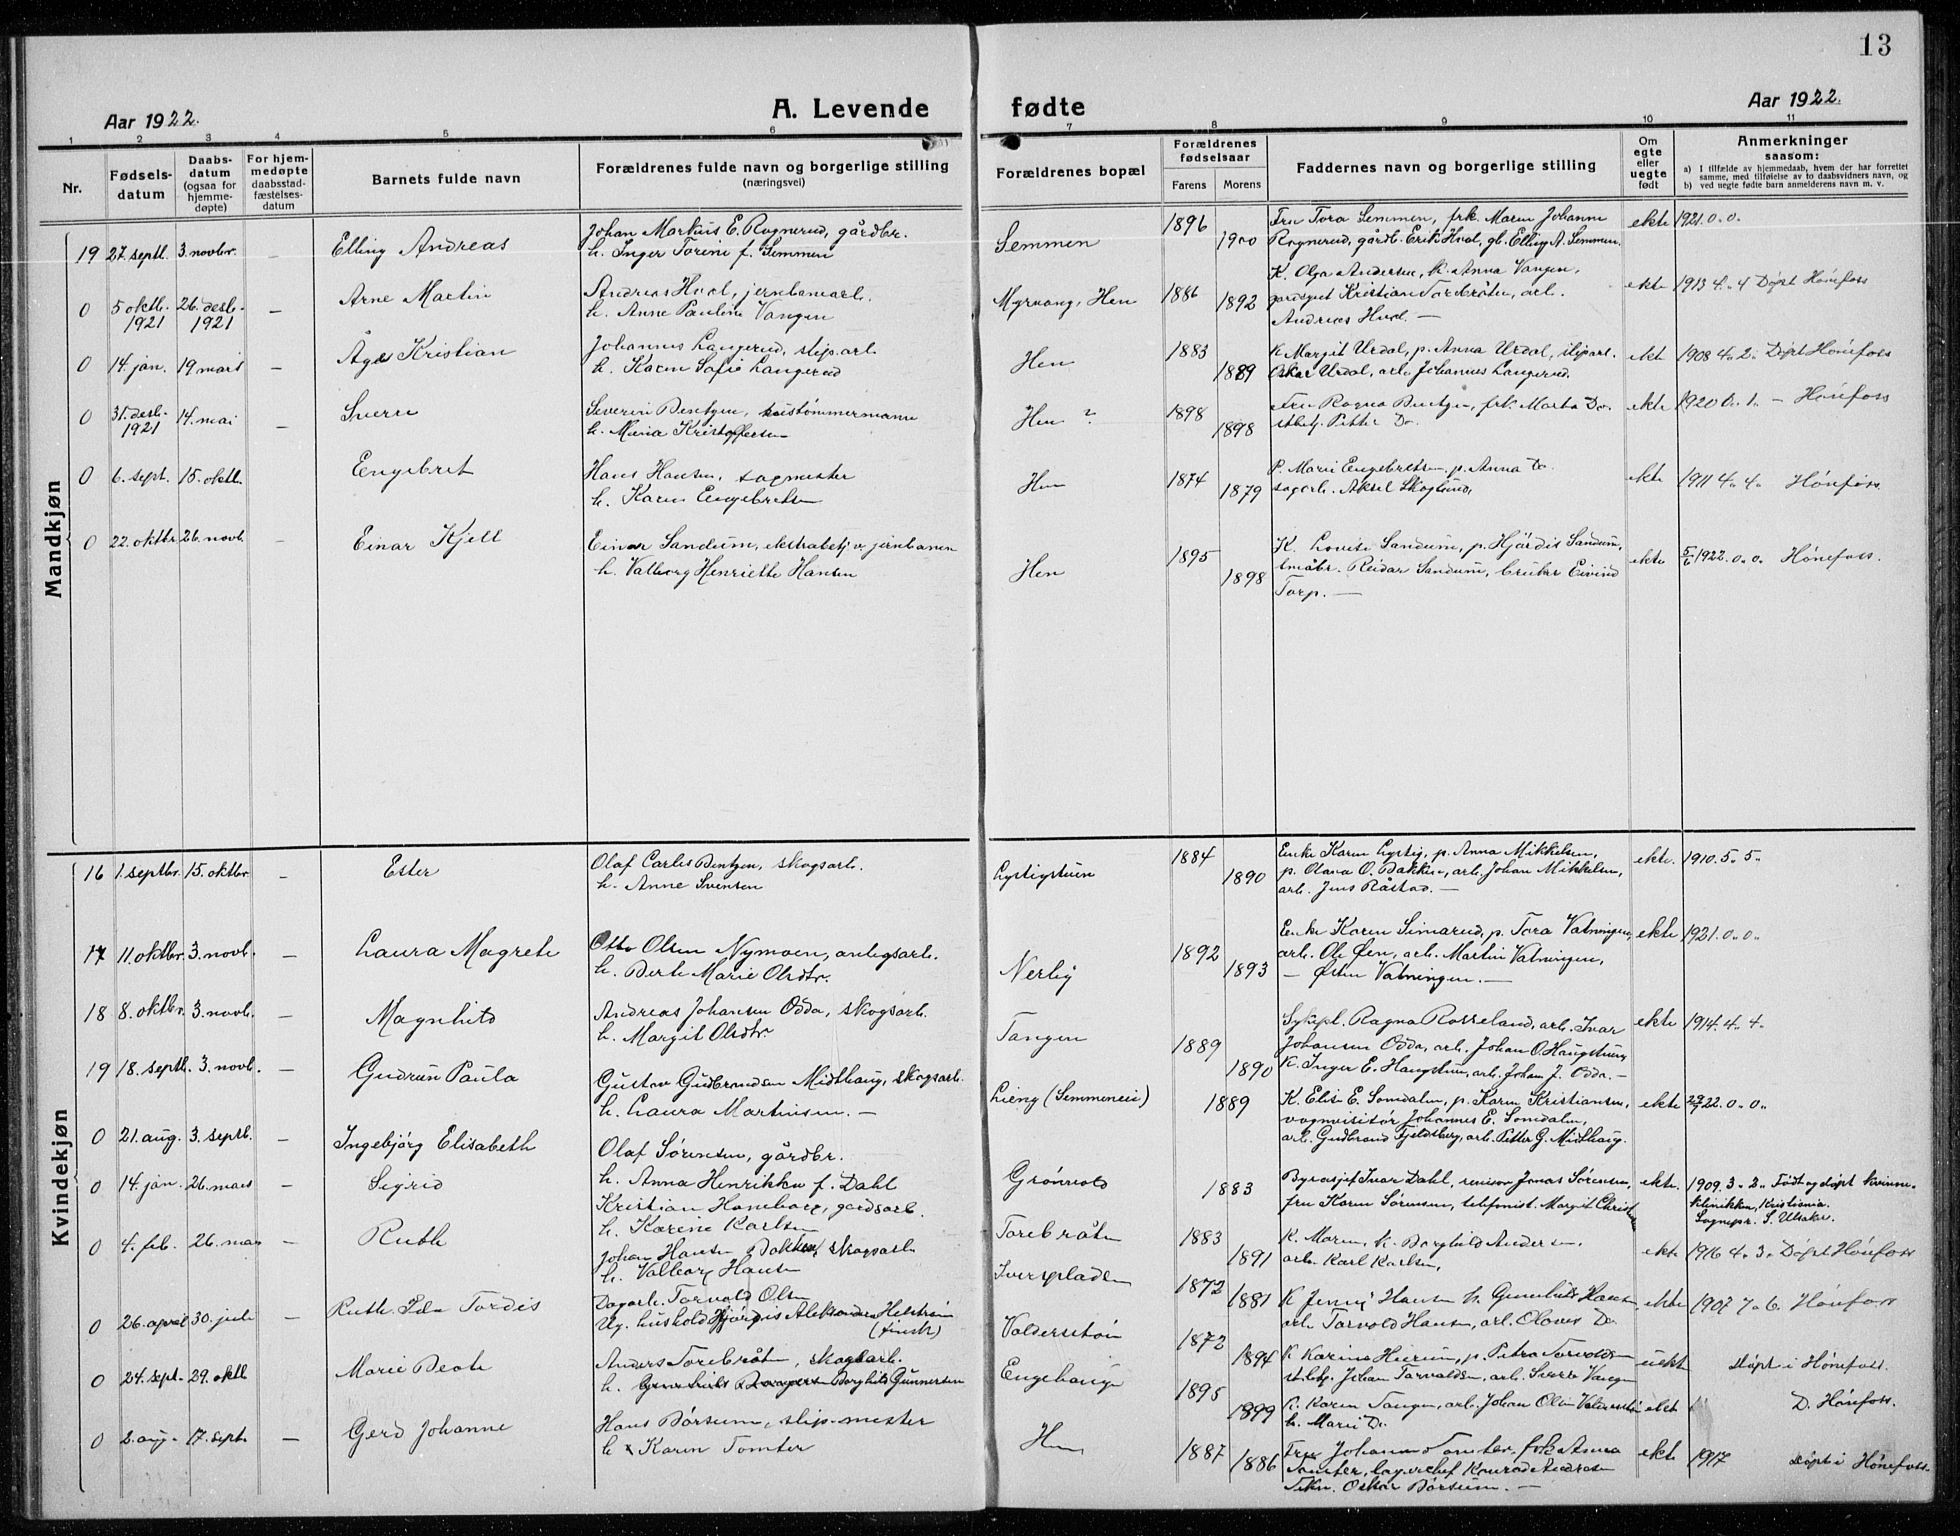 13
Aar 1922.
A. Levende fødte
Aar 1922.
1 2 3 4 5 6 7 8 9 10 11
Nr.
Fødsels-
datum
Daabs-
datum
(ogsaa for
hjemme-
døpte)
For hjem-
medøpte
daabsstad-
fæstelses-
datum
Barnets fulde navn
Forældrenes fulde navn og borgerlige stilling
(næringsvei)
Forældrenes bopæl
Forældrenes
fødselsaar
Farens Morens
Faddernes navn og borgerlige stilling
Om
egte
eller
uegte
født
Anmerkninger
saasom:
a) I tilfælde av hjemmedaab, hvem der har forrettet
samme, med tilføielse av to daabsvidners navn, og
b) ved uegte fødte barn anmelderens navn m. v.
Mandkjøn
19 27. septb. 3. novbr. — Elling Andreas
Johan Markus E. Rognerud, gårdbr.
h. Inger Torine f. Semmen
Semmen 1896 1900
Fru Tora Semmen, frk. Maren Johanne
Rognerud, gårdb. Erik Hval, gb. Elling A. Semmen.
ekte 1921. 0. 0.
0 5 oktb. 1921 26. desb. 1921 — Arne Martin
Andreas Hval, jernbanearb.
h. Anne Pauline Vangen
Myrvang, Hen 1886 1892
K. Olga Andersen, k. Anna Vangen,
Kristian Torebråten, arb.
Andreas Hval. —
ekte 1913 4. 4 Døpt Hønefoss
0 14. jan. 19 mars — Åge Kristian
Johannes Langerud, slip.arb.
h. Karen Sofie Langerud
Hen 1883 1889
K Margit Urdal, p. Anna Urdal, sliparb.
Oskar Urdal, arb. Johannes Langerud.
ekte 1908 4. 2. Døpt Hønefoss
0 31. desb. 1921 14. mai — Sverre
Severin Bentzen, hustømmermann
h. Maria Kristoffersen
Hen ? 1898 1898
Fru Ragna Bentzen, frk. Marta Do.
Petter Do.
ekte 1920 0. 1. — Hønefoss
0 6. sept. 15. oktb. — Engebret
Hans Hansen, sagmester
h. Karen Engebretsen
Hen 1874 1879
P. Marie Engebretsen, p. Anna Do
sagarb. Aksel Skoglund.
ekte 1911 4. 4. Hønefoss
0 22. oktbr. 26. novb. — Einar Kjell
Einar Sandum, ekstrabetj. v. jernbanen
h. Valborg Henriette Hansen
Hen 1895 1898
K. Lovise Sandum, p. Hjördis Sandum,
småbr. Reidar Sandum, bruker Eivind
Torp. —
ekte 5/6 1922. 0. 0. Hønefoss.
Kvindekjøn
16 1. septbr. 15. oktbr. — Ester
Olaf Carlis Bentzen, skogsarb.
h. Anne Svensen
Lystigstuen 1884 1890
Enke Karen Lystig, p. Anna Mikkelsen,
p. Olava O. Bakken, arb. Johan Mikkelsen,
arb. Jens Råstad. —
ekte. 1910. 5. 5.
17 11. oktbr. 3. novb. — Laura Magrete
Otto Olsen Nymoen, anlegsarb.
h. Berte Marie Olsdtr.
Nerby 1892 1893
Enke Karen Simarud, p. Tora Vatningen,
arb. Ole Øen, arb. Martin Vatningen,
— Østen Vatningen. —
ekte 1921. 0. 0.
18 8. oktbr. 3. novb. — Magnhild
Andreas Johansen Odda, skogsarb.
h. Margit Olsdtr.
Tangen 1889 1890
Sykepl. Ragna Rosseland, arb. Ivar
Johansen Odda, arb. Johan O. Haugstuen,
K. Inger E. Haugstuen, arb. Johan J. Odda. —
ekte 1914. 4. 4.
19 18. septb. 3. novb. — Gudrun Paula
Gustav Gudbrandsen Midthaug, skogsarb.
h. Laura Martinsen. —
Lieng (Semmeneie) 1889
K. Elise E. Somdalen, p. Karen Kristiansen,
vognvisitør Johannes E. Somdalen,
arb. Gudbrand Fjeldsberg, arb. Petter G. Midthaug.
ekte 22. 0. 0.
0 21. aug. 3. septb. — Ingebjørg Elisabeth
Olaf Sørensen, gårdbr.
h. Anna Henrikke f. Dahl
Grønvold 1883
Byråsjef Ivar Dahl, revisor Jonas Sørensen,
fru Karen Sørensen, telefonist. Margit
ekte. 1909. 3. 2. Født og døpt kvinne-
klinikken, Kristiania.
Sognepr. S. Utsaker.
0 14. jan. 26. mars — Sigrid
Kristian Honeborg, gardsarb.
h. Karine Karlsen
Torebråten 1883 1891
K. Maren, k. Borghild Andersen,
arb. Karl Karlsen,
ekte 1916 4. 3. Døpt Hønefoss
0 4. feb. 26. mars — Ruth
Johan Hansen Bakken, skogsarb.
h. Valborg Hansen
Iverspladsen 1872 1881
K Jenny Hansen k. Gunhild Hansen
arb. Torvald Hansen, arb. Olaves Do.
ekte 1907 7. 6. Hønefoss
0 26. april 30. juli — Ruth Tordis
Dagarb. Torvald Olsen
Ug. hushold. Hjørdis Aleksandra Helstrøm
(finsk)
Valdersstøen 1872 1894
K Karine Heieren, p. Petra Torvaldsen
Johan Torvaldsen, arb. Sverre Vangen
uekte Døpt i Hønefoss.
0 24. sept. 29. oktb — Marie Beate
Anders Torebråten, skogsarb.
h. Borghild Gunnersen
Engehaugen 1895 1899
K. Karen Tangen, arb. Johan Olsen Valdersstøen
h. Marie Do.
ekte D. Hønefoss.
0 2. aug. 17. sept. — Gerd Johanne
Hans Børsum, slip-mester
h Karen Tomter
Hen 1887 1886
Fru Johanne Tomter, frk Anna
Tomter, lagerchef Konrad Andresen
Tekn. Oskar Børsum. —
ekte 1917 Døpt i Hønefoss.